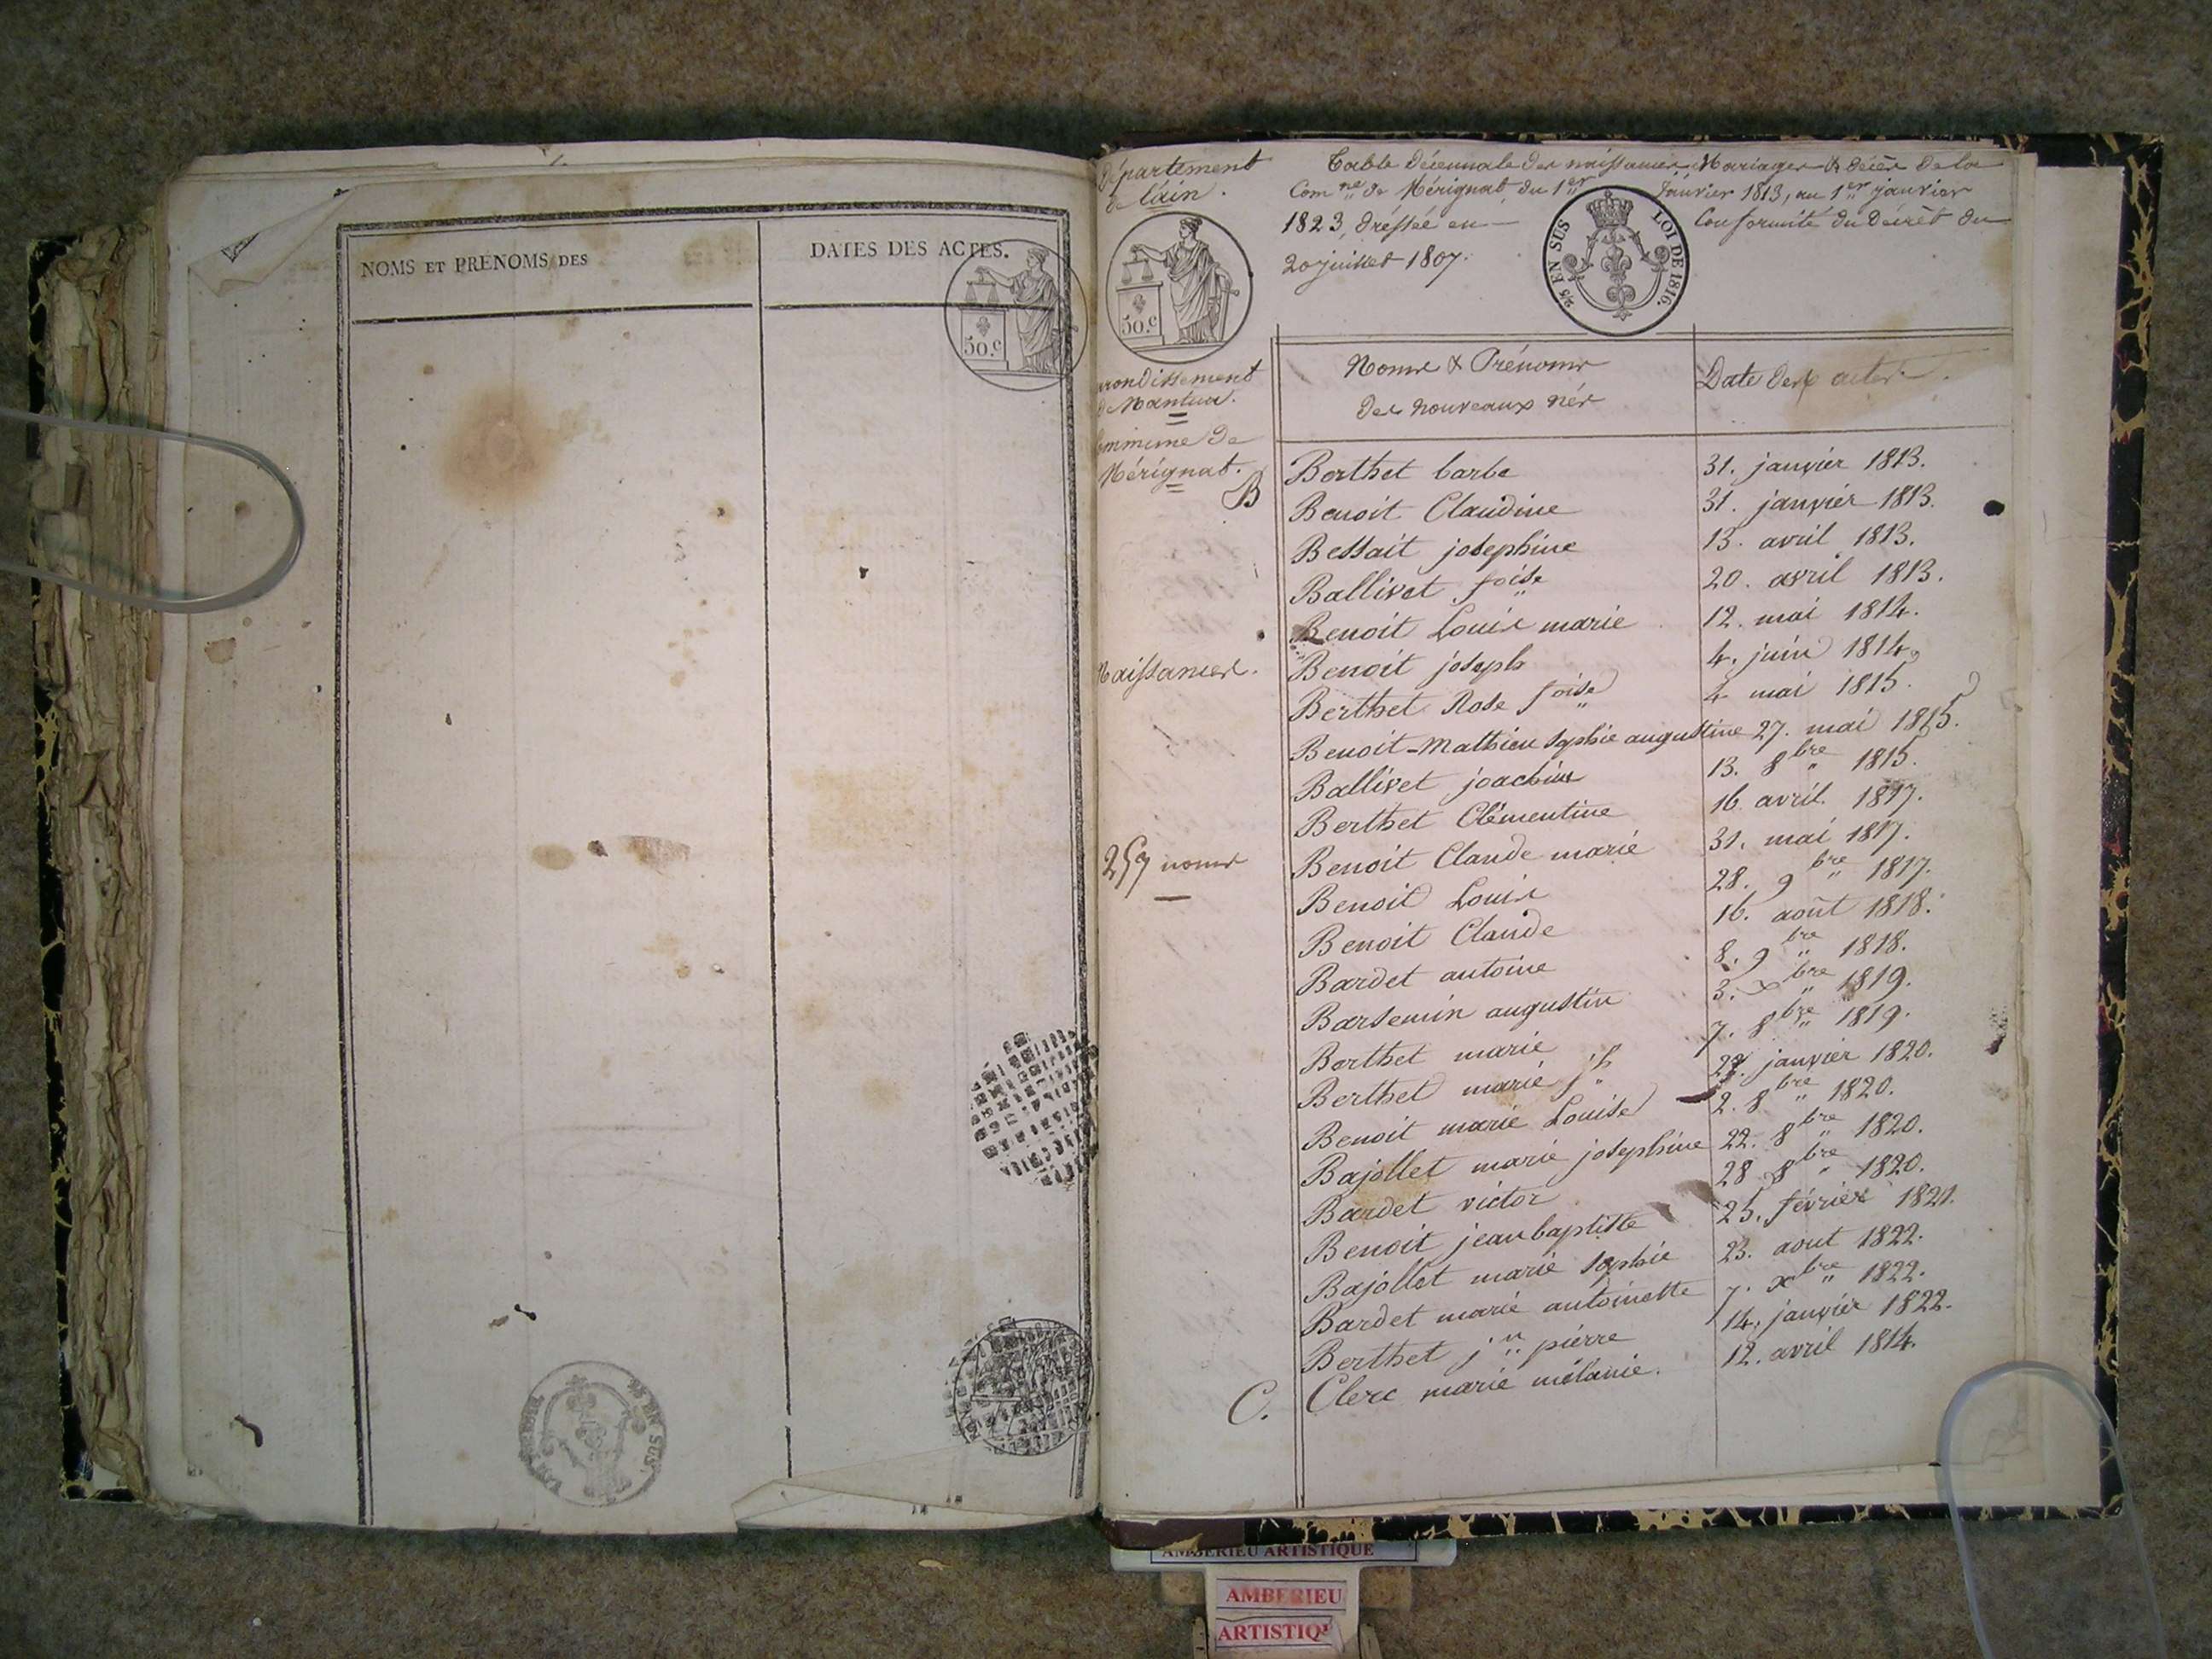 NOMS ET PRÉNOMS DES
DATES DES ACTES.
50.c
25 EN SUS
Département
de l'ain.
Table décennale des naissances, Mariages & décès de la
Com.ne de Mérignat, du 1er Janvier 1813, au 1er janvier
1823, dréssée en Conformité du Décrêt du
20 juillet 1807.
50.c
25 EN SUS LOI DE 1816.
arrondissement
de Nantua.
Commune de
Mérignat.
Naissances.
259 noms
Noms & Prénoms
des nouveaux nés
Date des actes.
B
Berthet barbe 31. janvier 1813.
Benoit Claudine 31. janvier 1813.
Bessait josephine 13. avril 1813.
Ballivet foise 20. avril 1813.
Benoit Louis marie 12. mai 1814.
Benoit joseph 4. juin 1814.
Berthet Rose foise 4 mai 1815.
Benoit-Mathieu sophie augustine 27. mai 1815.
Ballivet joachim 13. 8bre 1815.
Berthet Clémentine 16 avril. 1817.
Benoit Claude marie 31. mai 1817.
Benoit Louis 28. 9bre 1817.
Benoit Claude 16. août 1818.
Bardet antoine 8. 9bre 1818.
Barsemin augustin 3. xbre 1819.
Berthet marie 7. 8bre 1819.
Berthet marie jh janvier 1820.
Benoit marie Louise 2. 8bre 1820.
Bajollet marie josephine 22. 8bre 1820.
Bardet victor 28 8bre 1820.
Benoit jean baptiste 25. février 1821.
Bajollet marie sophie 23. aout 1822.
Bardet marie antoinette 7. xbre 1822.
Berthet jn pierre 14. janvier 1822.
C. Clerc marie mélanie. 12. avril 1814.
AMBERIEU ARTISTIQUE
AMBERIEU
ARTISTIQ